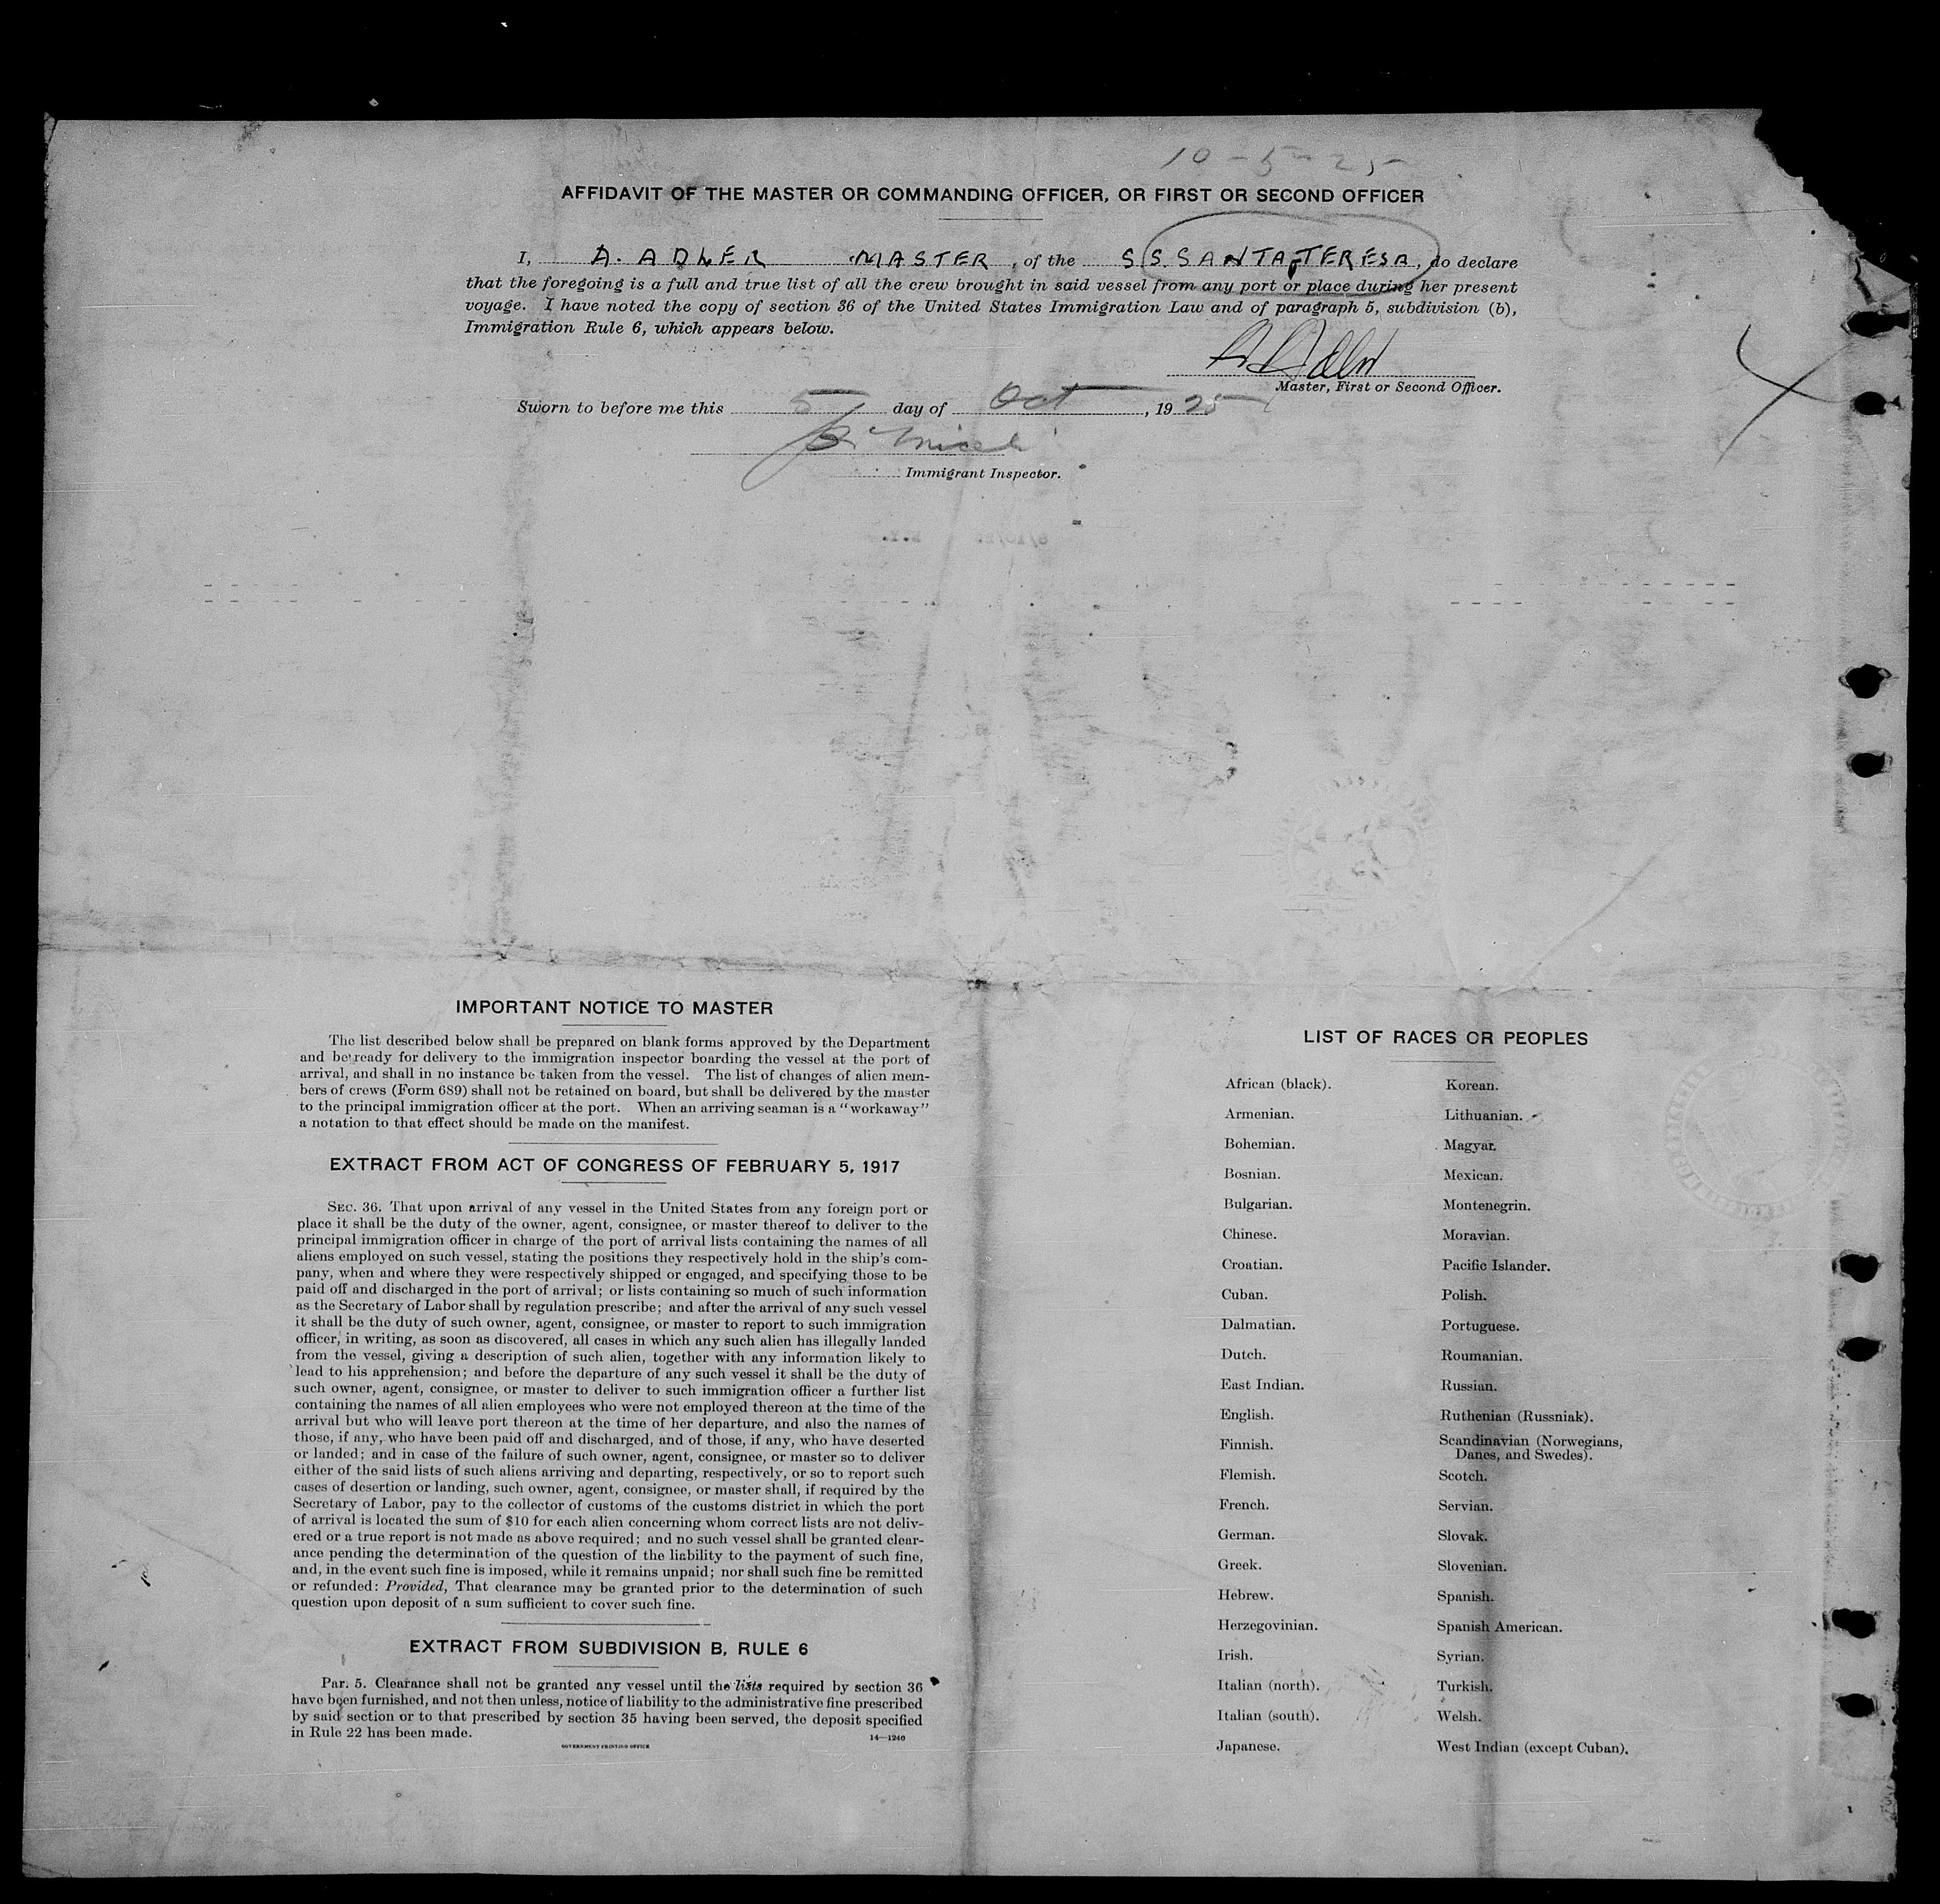 10-5-25
AFFIDAVIT OF THE MASTER OR COMMANDING OFFICER, OR FIRST OR SECOND OFFICER
I, A. ADLER MASTER, of the S.S. SANTA TERESA, do declare
that the foregoing is a full and true list of all the crew brought in said vessel from any port or place during her present
voyage. I have noted the copy of section 36 of the United States Immigration Law and of paragraph 5, subdivision (b),
Immigration Rule 6, which appears below.
A Adler
Master, First or Second Officer.
Sworn to before me this 5 day of Oct, 1925
Immigrant Inspector.
IMPORTANT NOTICE TO MASTER
The list described below shall be prepared on blank forms approved by the Department
and be ready for delivery to the immigration inspector boarding the vessel at the port of
arrival, and shall in no instance be taken from the vessel. The list of changes of alien mem-
bers of crews (Form 689) shall not be retained on board, but shall be delivered by the master
to the principal immigration officer at the port. When an arriving seaman is a "workaway"
a notation to that effect should be made on the manifest.
EXTRACT FROM ACT OF CONGRESS OF FEBRUARY 5, 1917
SEC. 36. That upon arrival of any vessel in the United States from any foreign port or
place it shall be the duty of the owner, agent, consignee, or master thereof to deliver to the
principal immigration officer in charge of the port of arrival lists containing the names of all
aliens employed on such vessel, stating the positions they respectively hold in the ship's com-
pany, when and where they were respectively shipped or engaged, and specifying those to be
paid off and discharged in the port of arrival; or lists containing so much of such information
as the Secretary of Labor shall by regulation prescribe; and after the arrival of any such vessel
it shall be the duty of such owner, agent, consignee, or master to report to such immigration
officer, in writing, as soon as discovered, all cases in which any such alien has illegally landed
from the vessel, giving a description of such alien, together with any information likely to
lead to his apprehension; and before the departure of any such vessel it shall be the duty of
such owner, agent, consignee, or master to deliver to such immigration officer a further list
containing the names of all alien employees who were not employed thereon at the time of the
arrival but who will leave port thereon at the time of her departure, and also the names of
those, if any, who have been paid off and discharged, and of those, if any, who have deserted
or landed; and in case of the failure of such owner, agent, consignee, or master so to deliver
either of the said lists of such aliens arriving and departing, respectively, or so to report such
cases of desertion or landing, such owner, agent, consignee, or master shall, if required by the
Secretary of Labor, pay to the collector of customs of the customs district in which the port
of arrival is located the sum of $10 for each alien concerning whom correct lists are not deliv-
ered or a true report is not made as above required; and no such vessel shall be granted clear-
ance pending the determination of the question of the liability to the payment of such fine,
and, in the event such fine is imposed, while it remains unpaid; nor shall such fine be remitted
or refunded: Provided, That clearance may be granted prior to the determination of such
question upon deposit of a sum sufficient to cover such fine.
EXTRACT FROM SUBDIVISION B, RULE 6
Par. 5. Clearance shall not be granted any vessel until the lists required by section 36
have been furnished, and not then unless, notice of liability to the administrative fine prescribed
by said section or to that prescribed by section 35 having been served, the deposit specified
in Rule 22 has been made.
14—1240
GOVERNMENT PRINTING OFFICE
LIST OF RACES OR PEOPLES
African (black).
Armenian.
Bohemian.
Bosnian.
Bulgarian.
Chinese.
Croatian.
Cuban.
Dalmatian.
Dutch.
East Indian.
English.
Finnish.
Flemish.
French.
German.
Greek.
Hebrew.
Herzegovinian.
Irish.
Italian (north).
Italian (south).
Japanese.
Korean.
Lithuanian.
Magyar.
Mexican.
Montenegrin.
Moravian.
Pacific Islander.
Polish.
Portuguese.
Roumanian.
Russian.
Ruthenian (Russniak).
Scandinavian (Norwegians,
Danes, and Swedes).
Scotch.
Servian.
Slovak.
Slovenian.
Spanish.
Spanish American.
Syrian.
Turkish.
Welsh.
West Indian (except Cuban).